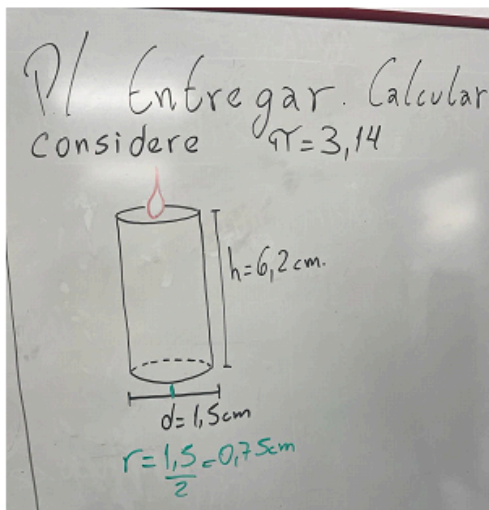 P/ Entregar. Calcular
considere π=3,14
h=6,2cm.
d=1,5cm
r=1,5=0,75cm
2